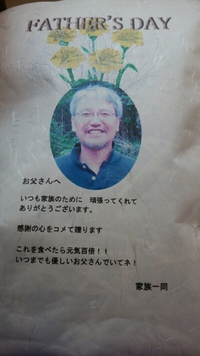 FATHER'S DAY
お父さんへ
いつも家族のために 頑張ってくれて
ありがとうございます。
感謝の心をコメて贈ります
これを食べたら元気百倍!!
いつまでも優しいお父さんでいてネ!
家族一同